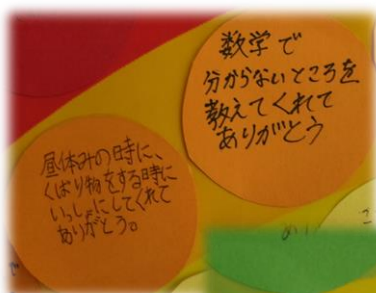 数学で
分からないところを
教えてくれて
ありがとう
昼休みの時に、
くばり物をする時に
いっしょにしてくれて
ありがとう。